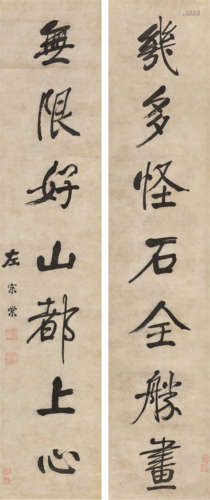 幾多怪石全勝畫
無限好山都上心
左宗棠